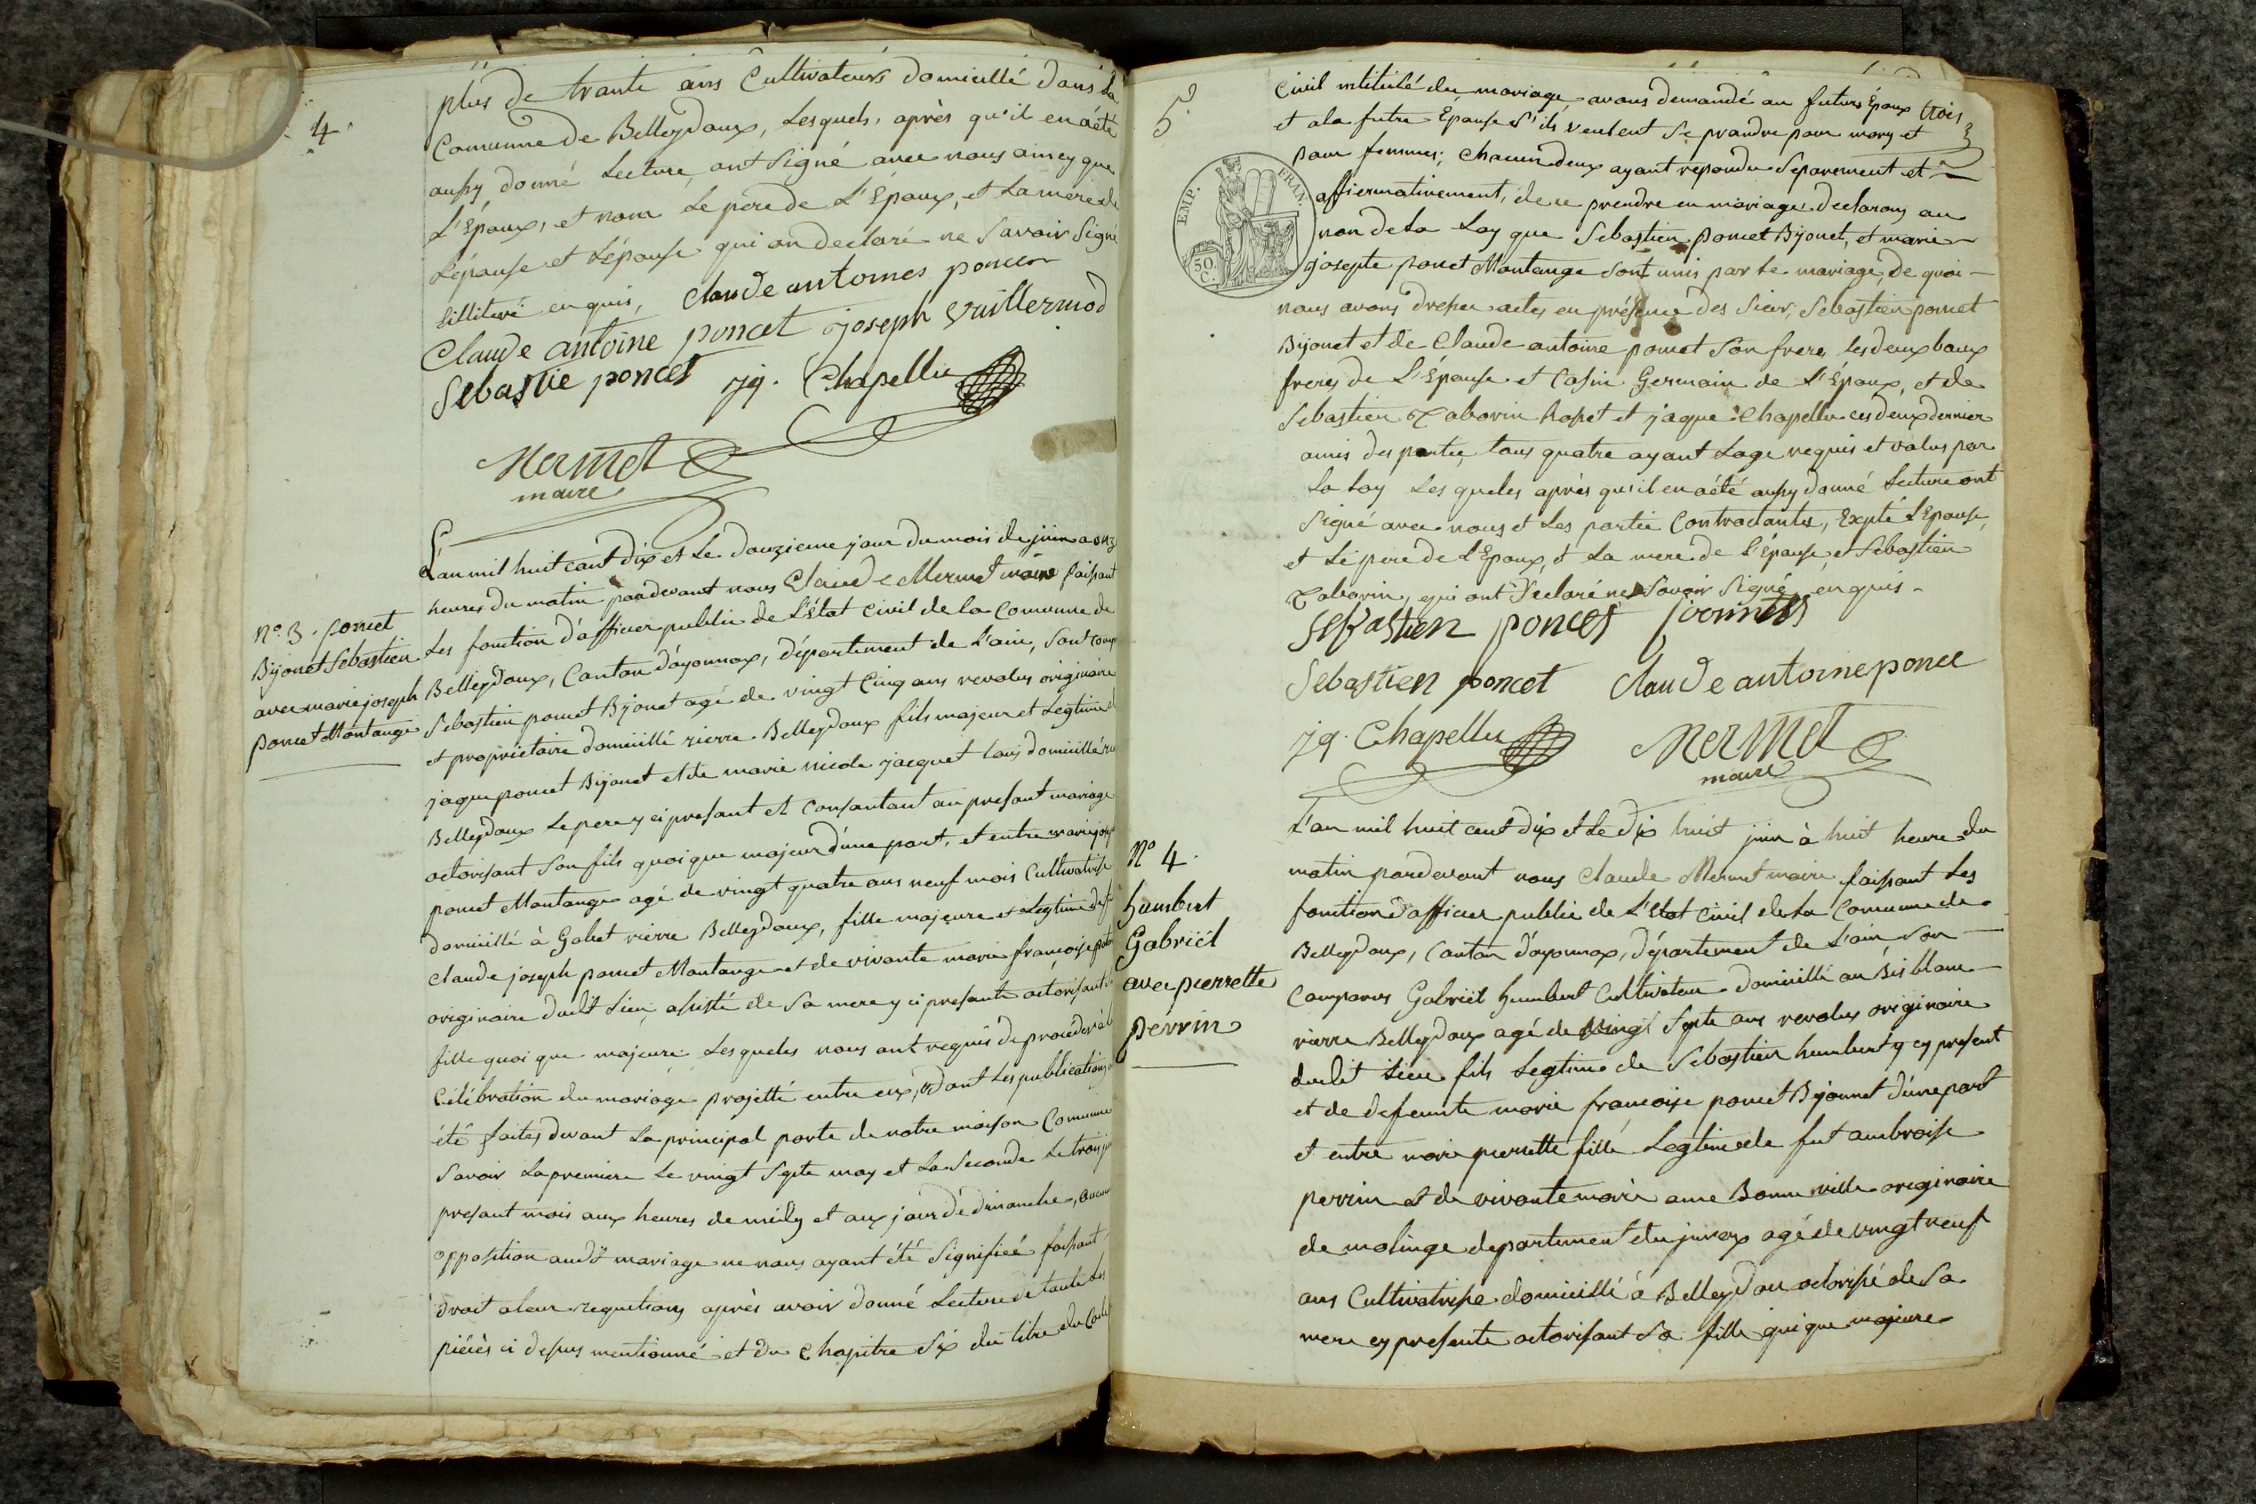 4.
plus de trante ans Cultivateurs domicillé dans la
Commune de Belleydoux, Lesquels, après qu'il en a été
aussy donné Lecture, ont Signé avec nous ainsy que
L'Epoux, et nom Le pere de L'Epoux, et La mere de
L'épouse et L'épouse qui on declaré ne Savoir Signé
en quis,
Claude antoines poncer
Claude antoine poncet joseph Vuillermod
Sebastie poncet jq. Chapellu
Mermet
maire
L'an mil huit cant dix et Le douzieme jour du mois de juin a onz
heures du matin pardevant nous Claude Mermet maire faissant
Les fonction d'afficier public de L'État Civil de la Commune de
Belleydoux, Canton d'oyonnax, département de L'ain, Sont comp
Sebastien poncet Bijonet agé de vingt Cinq ans revolus originaire
et propriétaire domicillé rierre Belleydoux fils majeur et Legtime d
jaque poncet Bijouet et de marie nicole jacquet tous domicillé ri
Belleydoux Le pere y ci presant et consantant au presant mariage
octorisant Son fils quoi que majeur d'une part, et entre marie jose
poncet Montange agé de vingt quatre ans neuf mois Cultivatrisse
domicillé à Gobet rierre Belleydoux, fille majeure et Legtime de fu
Claude joseph poncet Montange et de vivante marie françoise
originaire dudit Lieu, asistée de Sa mere y ci presante octorisant
fille quoi que majeure Lesqueles nous ont requis de proceder à la
Célébration du mariage projetté entre eux, et dont Les publications
été faites devant La principal porte de notre maison Commune
Savoir La premiere Le vingt Septe may et La Seconde Le trois
presant mois aux heures de midy et aux jour de dimanche, Aucune
opposition audit mariage ne nous ayant été Signifieé faissant
droit a leur requetions après avoir donné Lecture de toute Les
piéces ci dessus mentionné et du Chapitre Six du titre du Code
N° 3. poncet
Bijonet Sebastien
avec marie joseph
poncet Montange
5
trois
EMP.
FRAN.
50
C.
Civil intitulé du mariage avons demandé au futurs Époux
et a la futre Épouse S'ils veulent Se prandre pour mary et
pour femmes; chacun deux ayant repondu Separement et
affiermativement, de ce prendre en mariage declarons au
non de la Loy que Sebastien poncet Bijonet, et marie
josepte poncet Montange Sont unis par Le mariage, de quoi
nous avons dresser actes en présence des Sieur, Sebastien poncet
Bijonet et de Claude antoine poncet Son frere, les deux baux
freres de L'Épouse et Cosin Germain de L'Époux, et de
Sebastien Tabovin hapet et jaque Chapellu ces deux dernier
amis des partie, tous quatre ayant L'age requis et valus par
La Loy Les queles après qu'il en a été aussy donné Lecture ont
Signé avec nous et Les partie Contractantes, Expté L'Epouse,
et Le pere de L'Epoux, et La mere de L'épouse, et Sebastien
Tabovin, qui ont Déclaré ne Savoir Signé en quis.
Sebastien poncet
Sebastien poncet Claude antoine ponce
jq. Chapellu Mermet
maire
L'an mil huit cent dix et Le dix huit juin à huit heure du
matin pardevant nous Claude Mermet maire faissant Les
fonction d'afficier public de L'Etat Civil de La Commune de
Belleydoux, Canton d'oyonnax, département de L'ain Son
Comparus Gabriël humbert Cultivateur domicillé au Bis blanc
rierre Belleydoux agé de vingt Septe ans revolus originaire
dudit Lieu fils Legtime de Sebastien humbert y cy present
et de defeunte marie françoise poncet Bijonnet d'une part
et entre marie pierrette fille Legtime de fut ambroise
perrin et de vivante marie anne Bonneville originaire
de molinge departement du jurax agé de vingt neuf
ans Cultivatrise domicillé à Belleydou octorisé de Sa
mere cy presente octorisant Sa fille qui que majeure
N° 4.
humbert
Gabriël
avec pierrette
perrin